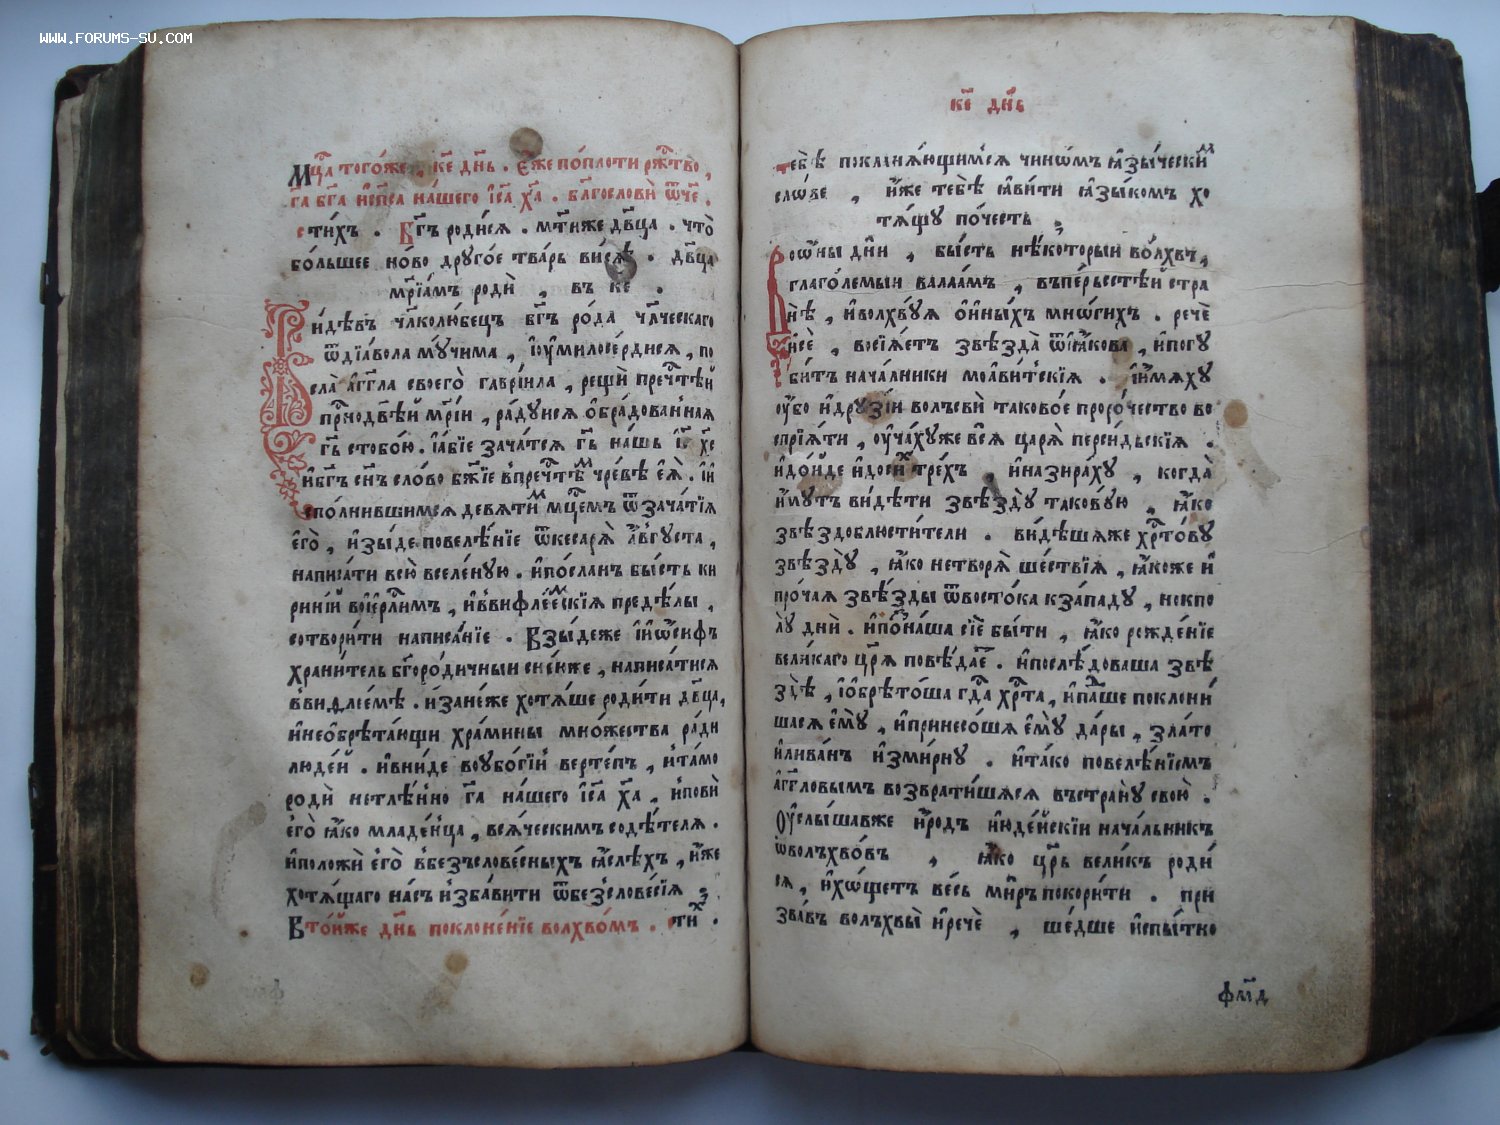 WWW.FORUMS-SU.COM
Мц҃а тогѡ́же, к҃е дн҃ь. Є҆́же по́плоти рж҃тво̀,
г҃а бг҃а и҆сп҃са на́шего і҆с҃а х҃а. бл҃гословѝ ѿч҃е.
стихъ. Бг҃ъ роди́ся. мт҃иже дв҃ца. что̀
бо́льшее но́во друго́е тва́рь ви́сѧ̀. дв҃ца
мр҃і́амъ родѝ, въ к҃е.
Ви́дѣвъ чл҃колю́бецъ бг҃ъ ро́да чл҃ческаго
ѿдїа́вола му́чима, і҆оу҆милосе́рдися, по
сла̀ а҆́гг҃ла своего̀ гаврїила, рещѝ преч҃тѣ́й
при́снодв҃ѣ́й мр҃і́и, ра́дуися ѻ҆бра́дованная
г҃ь стобо́ю. і҆а́бїе зача́тся г҃ь на́шь і҆с҃ х҃е
и҆бг҃ъ сн҃ъ сло́во бж҃їе впреч҃тѣмъ чре́вѣ є҆ѧ̀. і҆и҆
спо́лнившимся девяти́м мц҃емъ ѿзача́тїя
є҆го̀, и҆зы́де повелѣ́нїе ѿке́саря а҆́вгуста,
написа́ти всю̀ вселе́ную. и҆по́сланъ бы́сть ки
ри́нїй воі҆ер҃ли́мъ, и҆ввифлее́мскїя предѣ́лы,
сотвори́ти написа́нїе. Взы́деже і҆и҆ѡ́сифъ
храни́тель бг҃оро́дичныи сне́юже, написа́тися
ввифлее́мѣ. и҆зане́же хотя́ше роди́ти дв҃ца,
и҆необрѣта́ющи хра́мины мно́жества ра́ди
люде́й. и҆вни́де воубо́гїй верте́пъ, и҆та́мо
родѝ нетлѣ́нно г҃а на́шего і҆с҃а х҃а, и҆повѝ
є҆го̀ ꙗ҆́ко младе́нца, вся́ческимъ содѣ́теля.
и҆положѝ є҆го̀ вбезъслове́сныхъ ꙗ҆́слехъ, и҆́же
хотя́щаго на́съ и҆зба́вити ѿбезслове́сїя;
Вто́йже дн҃ь поклоне́нїе волхво́мъ. сти҃х.
к҃е дн҃ь
тебѣ̀ покланя́ющимся чино́мъ ꙗ҆зы́чески҃м
сло́ве, и҆́же тебѣ̀ ꙗ҆ви́ти ꙗ҆зы́комъ хо
тя́щу по́честь;
Во ѡ҆́ны дн҃и, бы́сть нѣ́который во́лхвъ,
глаго́лемыи валаа́мъ, впе́рсьстѣ́й стра
нѣ̀, и҆волхву́я о҆и́ныхъ мно́гихъ. речѐ
и҆сѐ, возсїя́етъ звѣзда̀ ѿі҆а́кова, и҆погу
би́тъ нача́лники моави́тскїя. і҆и҆мя́ху
ѹ҆́бо и҆друзі́и волъсвѝ таково́е проро́чество во
спрїя́ти, ѹ҆ча́хуже вся̀ царя̀ перси́дьскїя.
и҆до́йде и҆доси҃х тре́хъ, и҆назира́ху, когда̀
и҆́мутъ ви́дѣти звѣзду̀ такову́ю, ꙗ҆́ко
звѣздоблюсти́тели. ви́дѣшяже хр҃то́ву
звѣзду̀, ꙗ҆́ко нетворя̀ ше́ствїя, ꙗ҆́коже и҆
про́чая звѣ́зды ѿвосто́ка кза́паду, нокпо
лу днѝ. и҆позна́ша сїѐ бы́ти, ꙗ҆́ко рожде́нїе
вели́каго цр҃я̀ повѣ́дае҃т. и҆послѣ́доваша звѣ
здѣ̀, і҆ѻ҆брѣто́ша г҃да хр҃та, и҆па́дше поклони́
шася є҆му̀, и҆принесо́шя є҆му̀ да́ры, зла́то
и҆лива́нъ и҆зми́рну. и҆та́ко повелѣ́нїемъ
а҆́гг҃ловымъ возврати́шяся въстрану̀ свою̀.
Оу҆слы́шавже и҆́родъ и҆юде́йскїи нача́льникъ
ѡ҆волъхво́въ, ꙗ҆́ко цр҃ь вели́къ роди́
ся, и҆хо́щетъ ве́сь ми́ръ покори́ти. при
зва́въ волъхвы̀ и҆речѐ, ше́дше и҆спы́тно
фм҃д